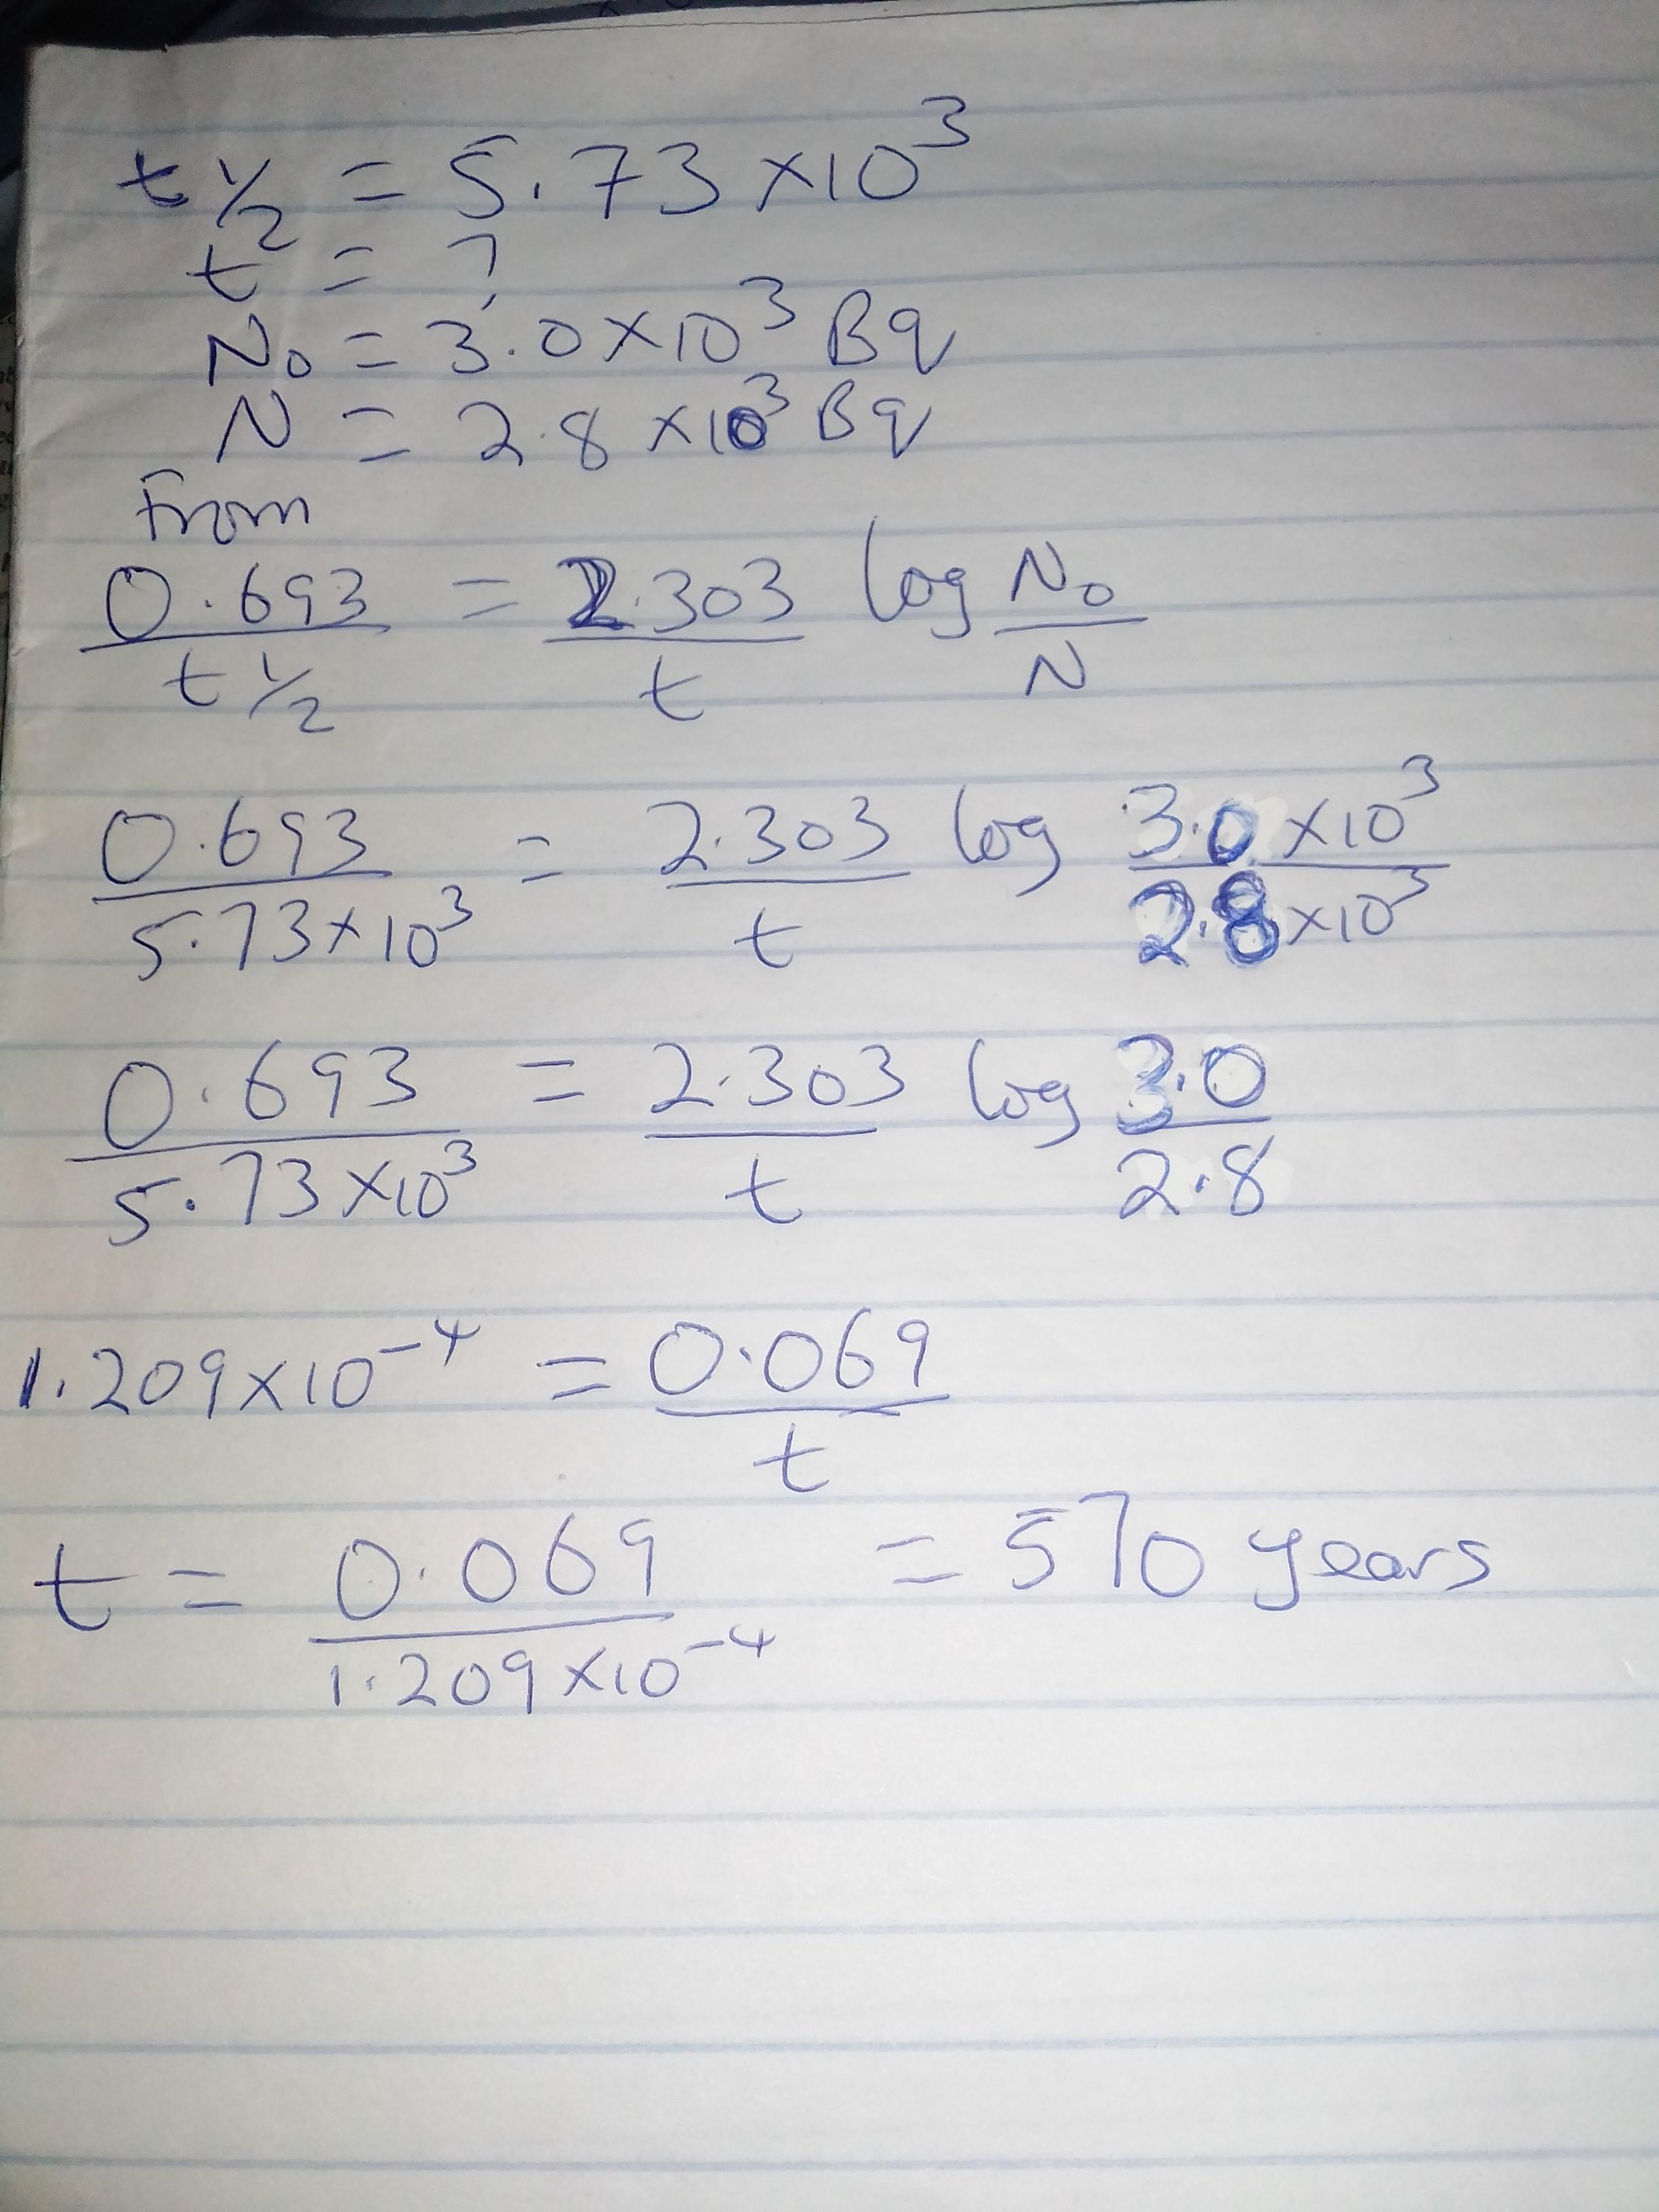 t 1/2 = 5.73 ×10³
t = ?
N₀ = 3.0×10³ Bq
N = 2.8 ×10³ Bq
From
0.693 / t 1/2 = 2.303 / t log N₀ / N
0.693 / 5.73×10³ = 2.303 / t log 3.0 ×10³ / 2.8 ×10³
0.693 / 5.73 ×10³ = 2.303 / t log 3.0 / 2.8
1.209×10⁻⁴ = 0.069 / t
t = 0.069 / 1.209 ×10⁻⁴ = 570 years